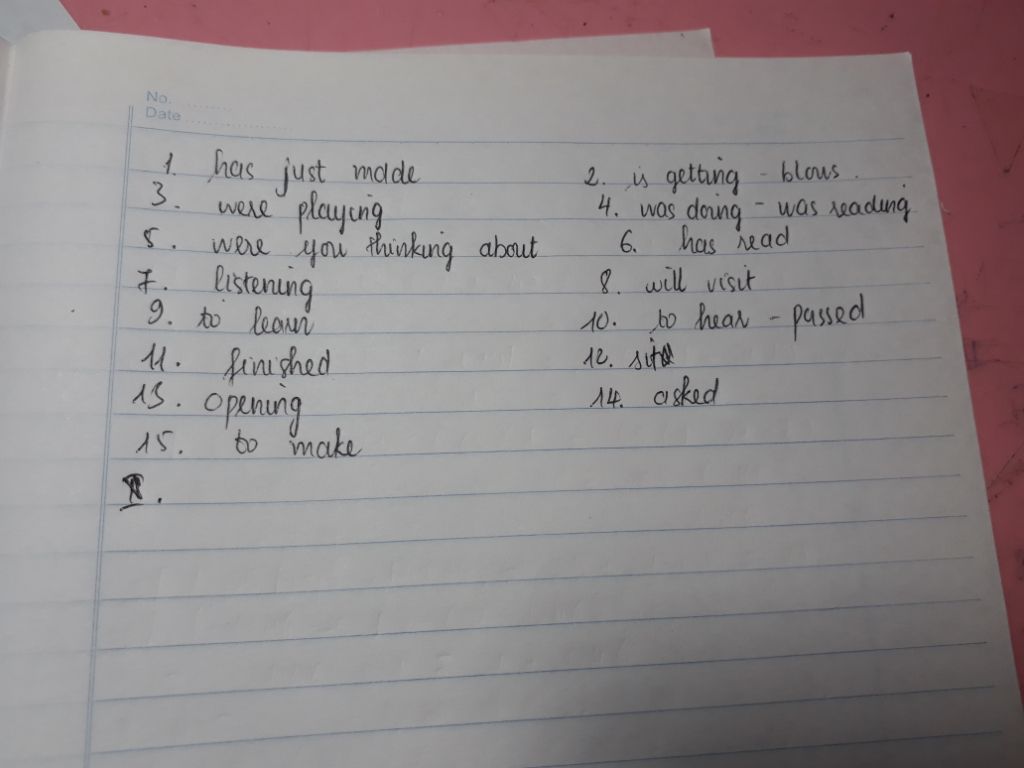 No. ..........
Date ....................
1. has just made 2. is getting - blows.
3. were playing 4. was doing - was reading
5. were you thinking about 6. has read
7. listening 8. will visit
9. to learn 10. to hear - passed
11. finished 12. sit
13. opening 14. asked
15. to make